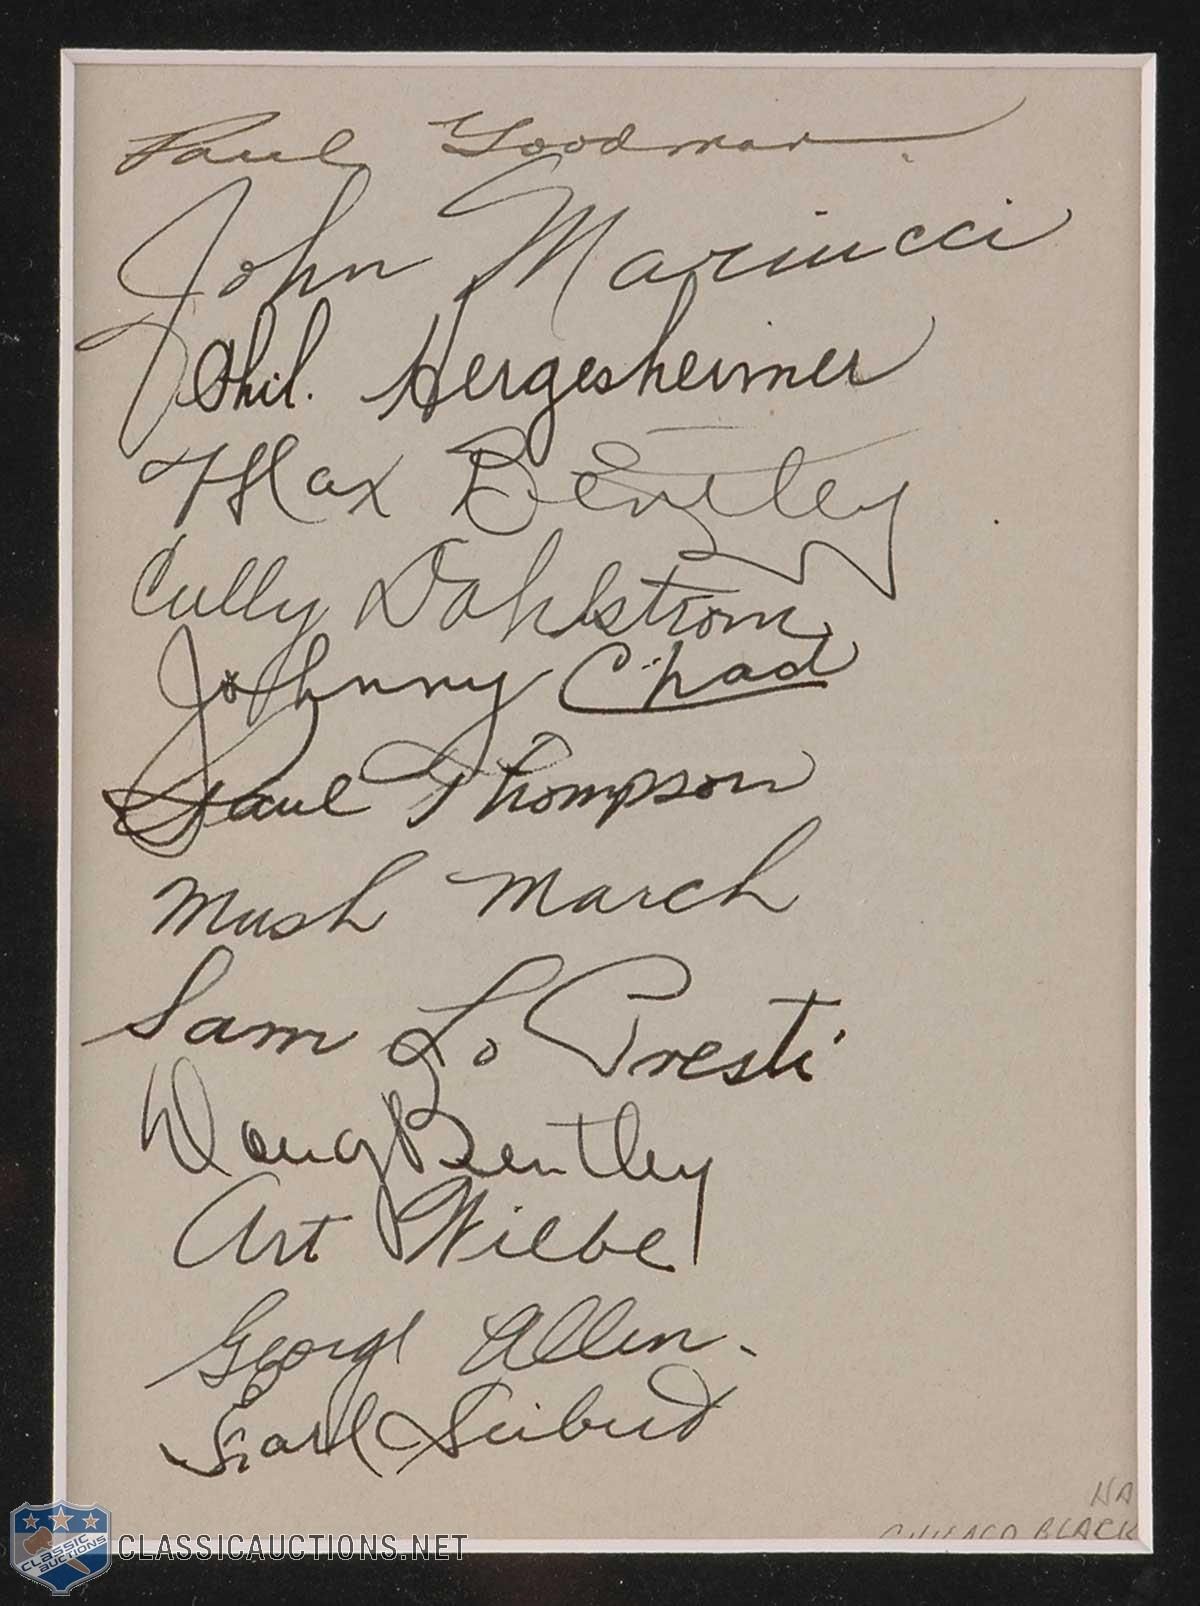 Paul Goodman
John Mariucci
Phil. Hergesheimer
Max Bentley
Cully Dahlstrom
Johnny Chad
Paul Thompson
Mush March
Sam Lo Presti
Doug Bentley
Art Wiebe
George Allen.
Earl Seibert
NA
CHICAGO BLACK
CLASSIC
AUCTIONS
CLASSICAUCTIONS.NET